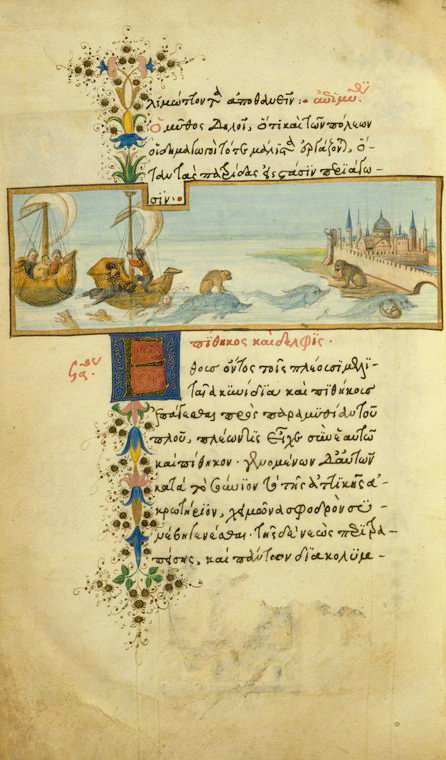 λιμώττοντα ἀποθανεῖν :·
Ὁ μῦθος δηλοῖ, ὅτι καὶ τῶν πόλεων
οἱ δημαγωγοὶ τότε μάλιστα ἐργάζονται, ὅ-
ταν τὰς πατρίδας εἰς στάσιν περιάγω-
σιν :·
πίθηκος καὶ δελφίς.
Ἔθους ὄντος τοῖς πλέουσι μελι-
ταῖα κυνίδια καὶ πιθήκους
ἐπάγεσθαι πρὸς παραμυθίαν τοῦ
πλοῦ, πλέων τις εἶχε σὺν ἑαυτῷ
καὶ πίθηκον. γενομένων δ' αὐτῶν
κατὰ τὸ Σούνιον τὸ τῆς ἀττικῆς ἀ-
κρωτήριον, χειμῶνα σφοδρὸν συ-
νέβη γενέσθαι. τῆς δὲ νεὼς περιτρα-
πείσης, καὶ πάντων διακολυμ-